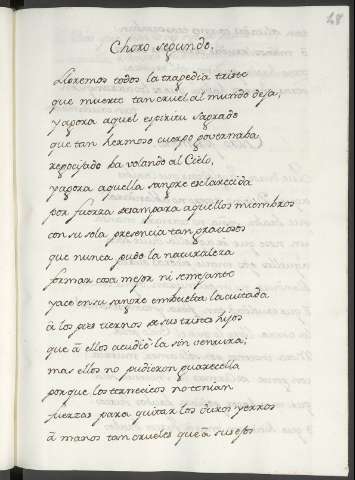 48
Choro segundo.
Lloremos todos la tragedia triste
que muerte tan cruel al mundo dexa,
y agora aquel espiritu sagrado
que tan hermoso cuerpo governaba,
regocijado ba volando al Cielo,
y agora aquella sangre esclarecida
por fuerza desampara aquellos miembros
con su sola presencia tan graciosos
que nunca pudo la naturaleza
formar cosa mejor ni semejante
yace en su sangre embuelta la cuitada
â los pies tiernos de sus tristes hijos
que â ellos acudiò la sin ventura;
mas ellos no pudieron guarecella
porque los ternecicos no tenian
fuerzas para quitar los duros yerros
â manos tan crueles que â sus